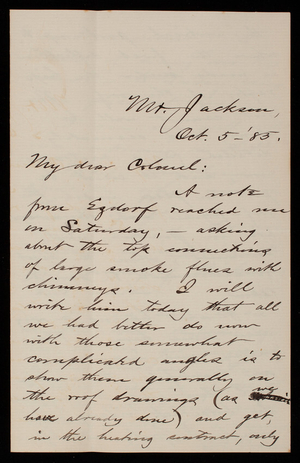 Mt. Jackson,
Oct. 5 – '85.
My dear Colonel:
A note
from Ezdorf reached me
on Saturday, – asking
about the top connections
of large smoke flues with
chimneys. I will
write him today that all
we had better do now
with those somewhat
complicated angles is to
show them generally on
the roof drawings (as we
have already done) and get,
in the heating contract, only